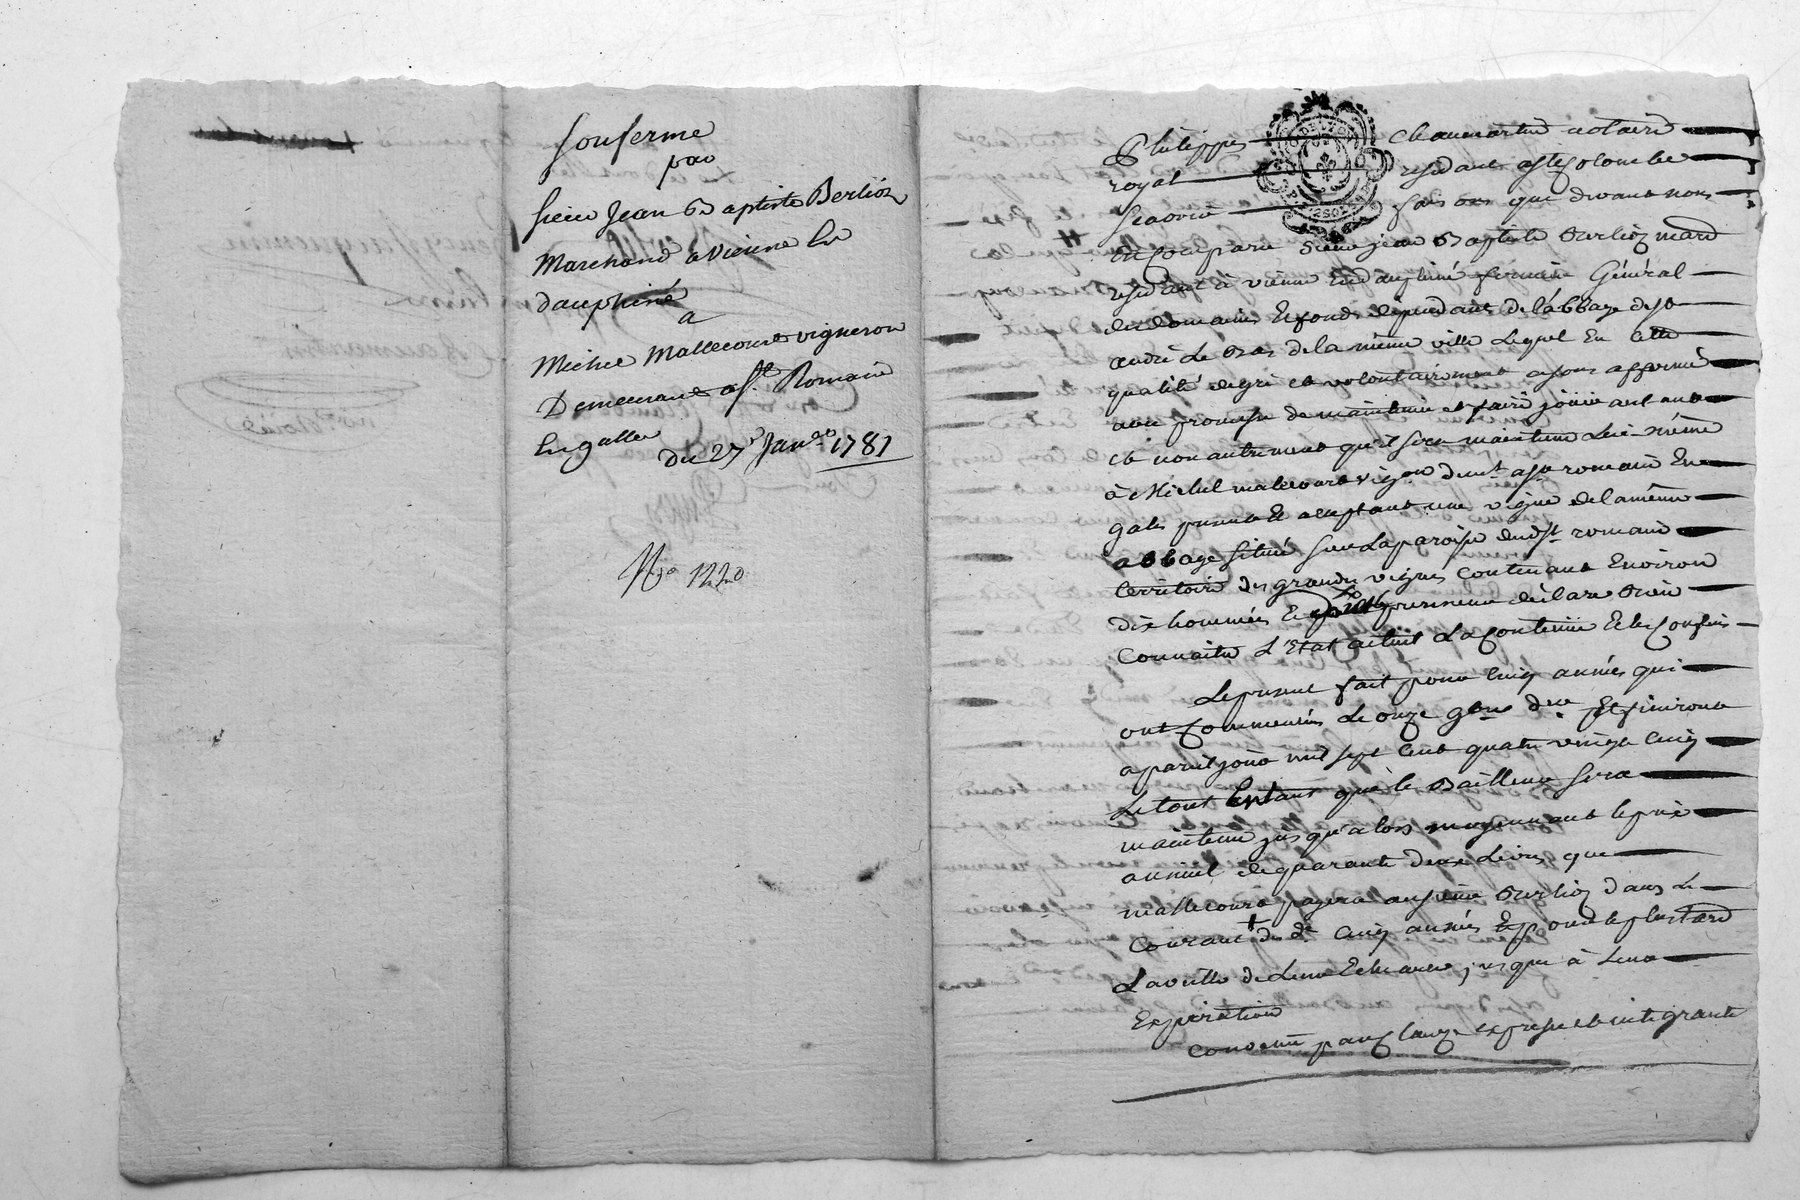 Souferme
par
sieur Jean Baptiste Berlioz
Marchand a Vienne En
dauphiné
a
Michel Mallecourt vigneron
Demeurant a St. Romain
En galles
du 27e Janer 1781
No 1220
Philippe Chaumartin notaire
royal residant a Ste Colombe
scavoir fais ons que devant nous
En comparu sieur jean Baptiste Berlioz mard
residant à vienne En dauphiné fermier Général
des domaines Et fonds dependants de l'abbaye de st
andré Le Bas de la même ville Lequel En Cette
qualité de gré et volontairement a sous affermé
avec promesse de maintenir et faire jouir autant
et non autrement qu'il sera maintenu Lui-même
à Michel mallecourt vigon demt a st romain En
gales present Et acceptant une vigne de la même
abbaye située sur La paroisse dudt st romain
territoire des grandes vignes contenant Environ
dix hommées Et preneur déclare Bien
Connaitre L'Etat actuel La contenue Et les confins
Le present fait pour Cinq années qui
ont commencées Le onze 9bre der Et finiront
a pareil jour mil sept Cent quatre vingt Cinq
Le tout Entant que le Bailleur sera
maintenu jusqu'alors moyennant le prix
annuel de quarante deux Livres que
mallecourt payera au sieur Berlioz dans Le
Courant des de Cinq années Et pour le plus tard
La veille de Leur Echeance jusque à Leur
Expiration
Convenu par Clause expresse et integrante